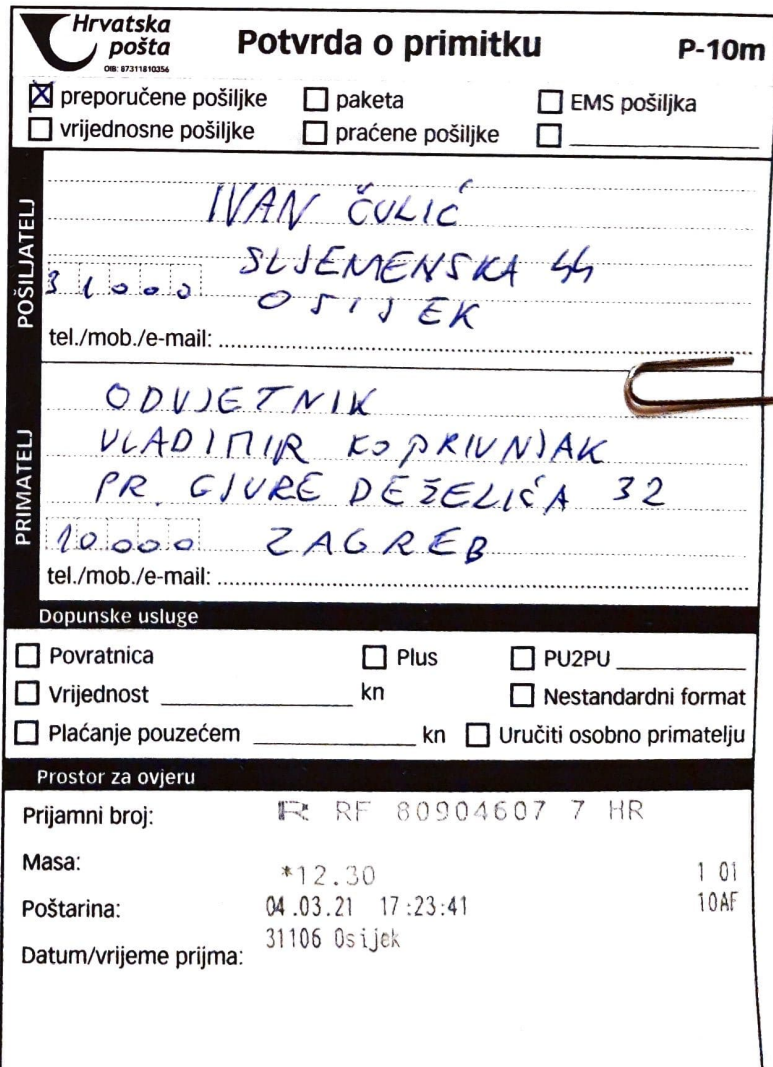 Hrvatska pošta
OIB: 87311810356
Potvrda o primitku
P-10m
preporučene pošiljke paketa EMS pošiljka
vrijednosne pošiljke praćene pošiljke
POŠILJATELJ
IVAN ČULIĆ
SLJEMENSKA 44
31000 OSIJEK
tel./mob./e-mail:
PRIMATELJ
ODVJETNIK
VLADIMIR KOPRIVNJAK
PR. GJURE DEŽELIĆA 32
10000 ZAGREB
tel./mob./e-mail:
Dopunske usluge
Povratnica Plus PU2PU
Vrijednost kn Nestandardni format
Plaćanje pouzećem kn Uručiti osobno primatelju
Prostor za ovjeru
Prijamni broj: R RF 80904607 7 HR
Masa:
*12.30 1 01
Poštarina: 04.03.21 17:23:41 10AF
31106 Osijek
Datum/vrijeme prijma: